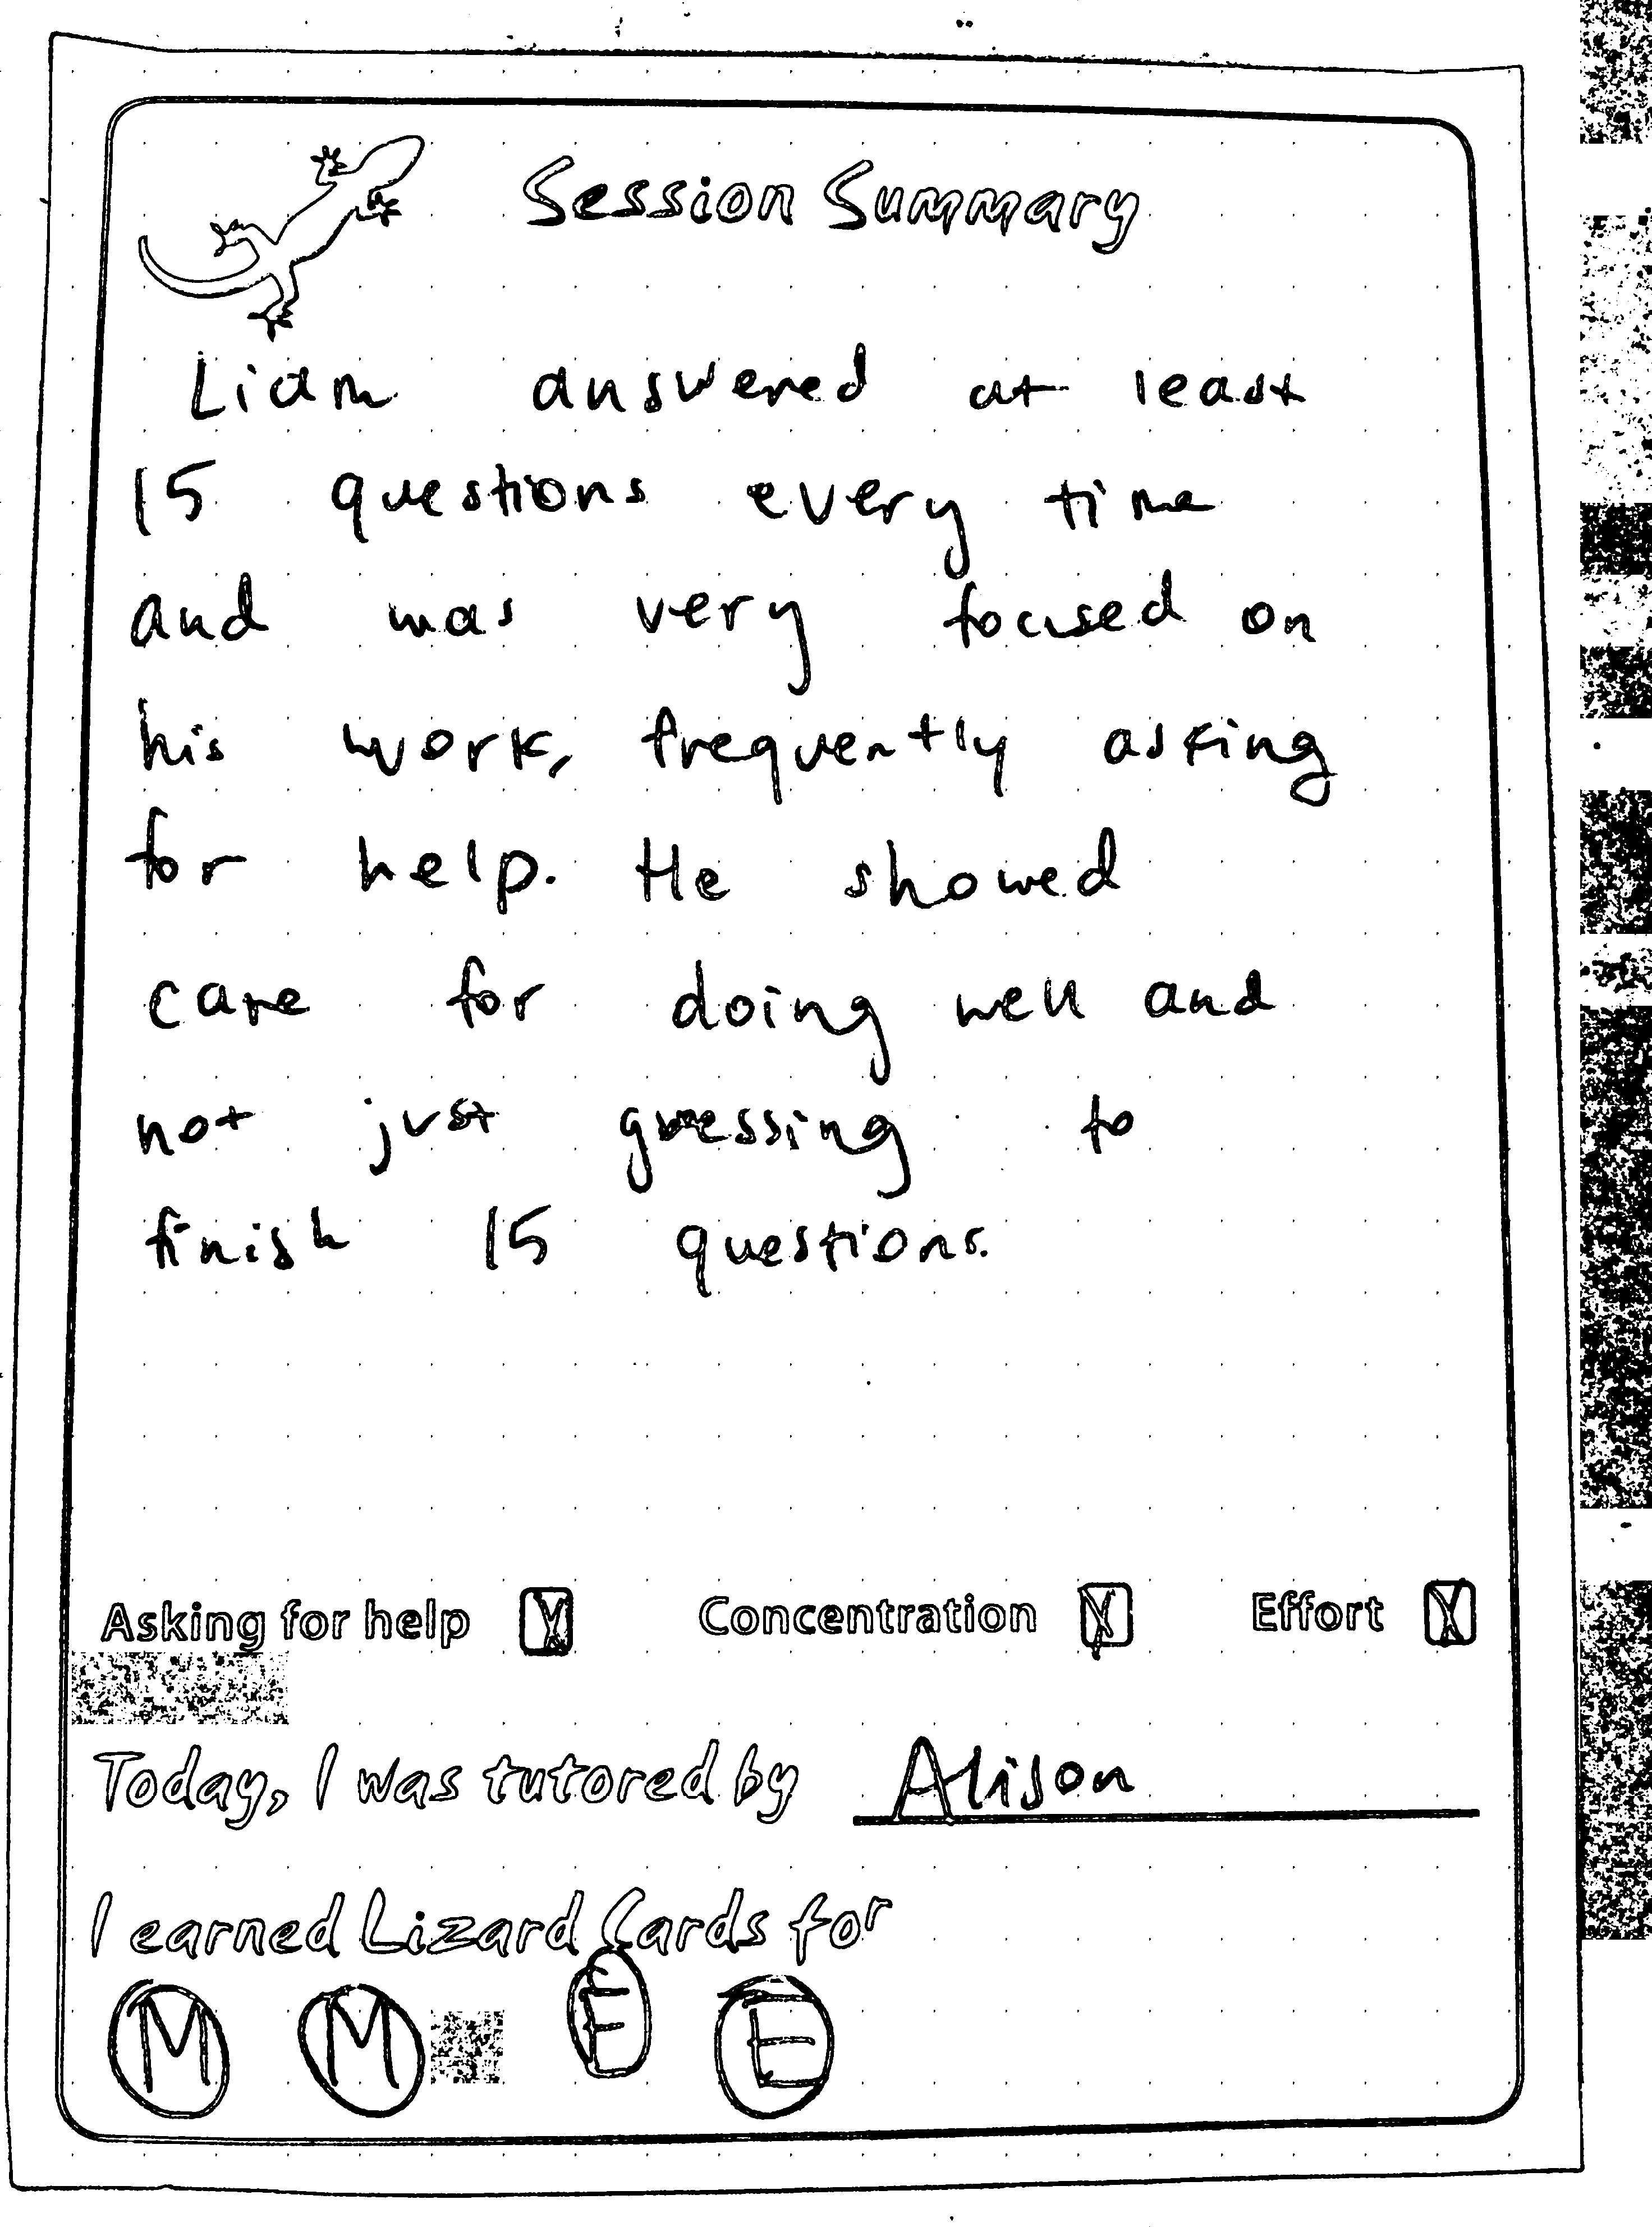 Session Summary
Liam answered at least
15 questions every time
and was very focused on
his work, frequently asking
for help. He showed
care for doing well and
not just guessing to
finish 15 questions.
Asking for help Concentration Effort
Today, I was tutored by Alison
I earned Lizard Cards for
M M E E